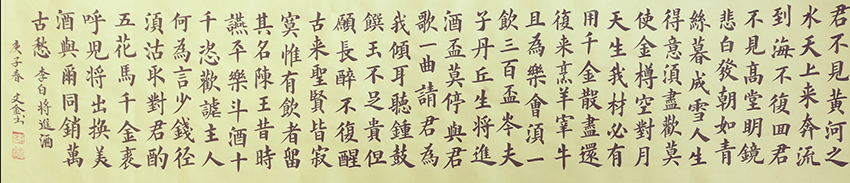 君不見黃河之
水天上來奔流
到海不復回君
不見高堂明鏡
悲白發朝如青
絲暮成雪人生
得意須盡歡莫
使金樽空對月
天生我材必有
用千金散盡還
復来烹羊宰牛
且為樂會須一
飲三百盃岑夫
子丹丘生將進
酒盃莫停與君
歌一曲請君為
我傾耳聽鍾鼓
饌玉不足貴但
願長醉不復醒
古来聖賢皆寂
寞惟有飲者留
其名陳王昔時
讌平樂斗酒十
千恣歡謔主人
何為言少錢径
須沽取對君酌
五花馬千金裘
呼児將出換美
酒與爾同銷萬
古愁 李白將進酒
庚子春